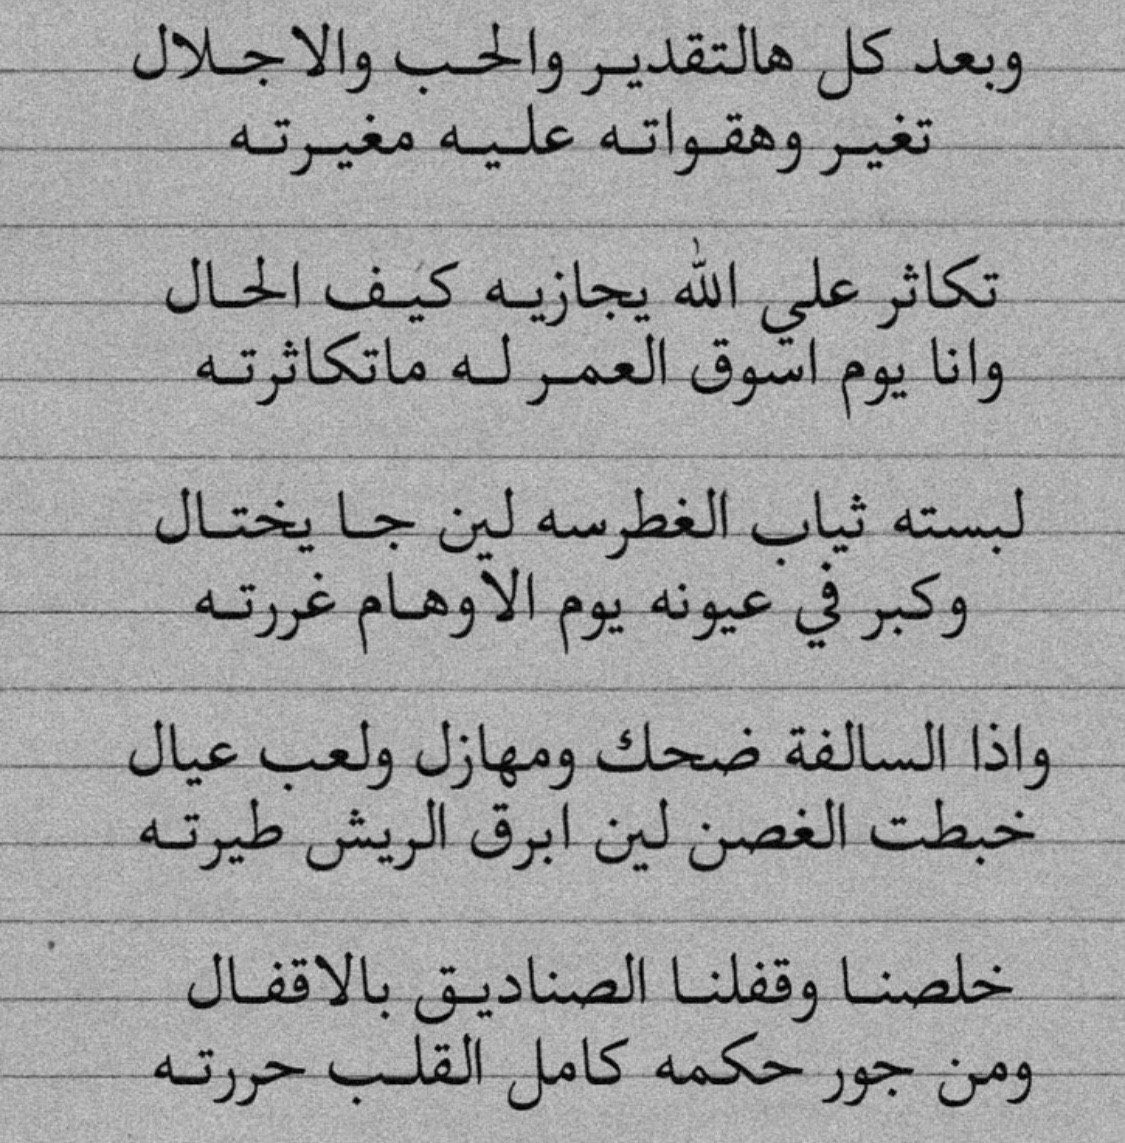 وبعد كل هالتقدير والحب والاجلال
تغير وهقواته عليه مغيرته
تكاثر علي الله يجازيه كيف الحال
وانا يوم اسوق العمر له ماتكاثرته
لبسته ثياب الغطرسه لين جا يختال
وكبر في عيونه يوم الاوهام غررته
واذا السالفة ضحك ومهازل ولعب عيال
خبطت الغصن لين ابرق الريش طيرته
خلصنا وقفلنا الصناديق بالاقفال
ومن جور حكمه كامل القلب حررته